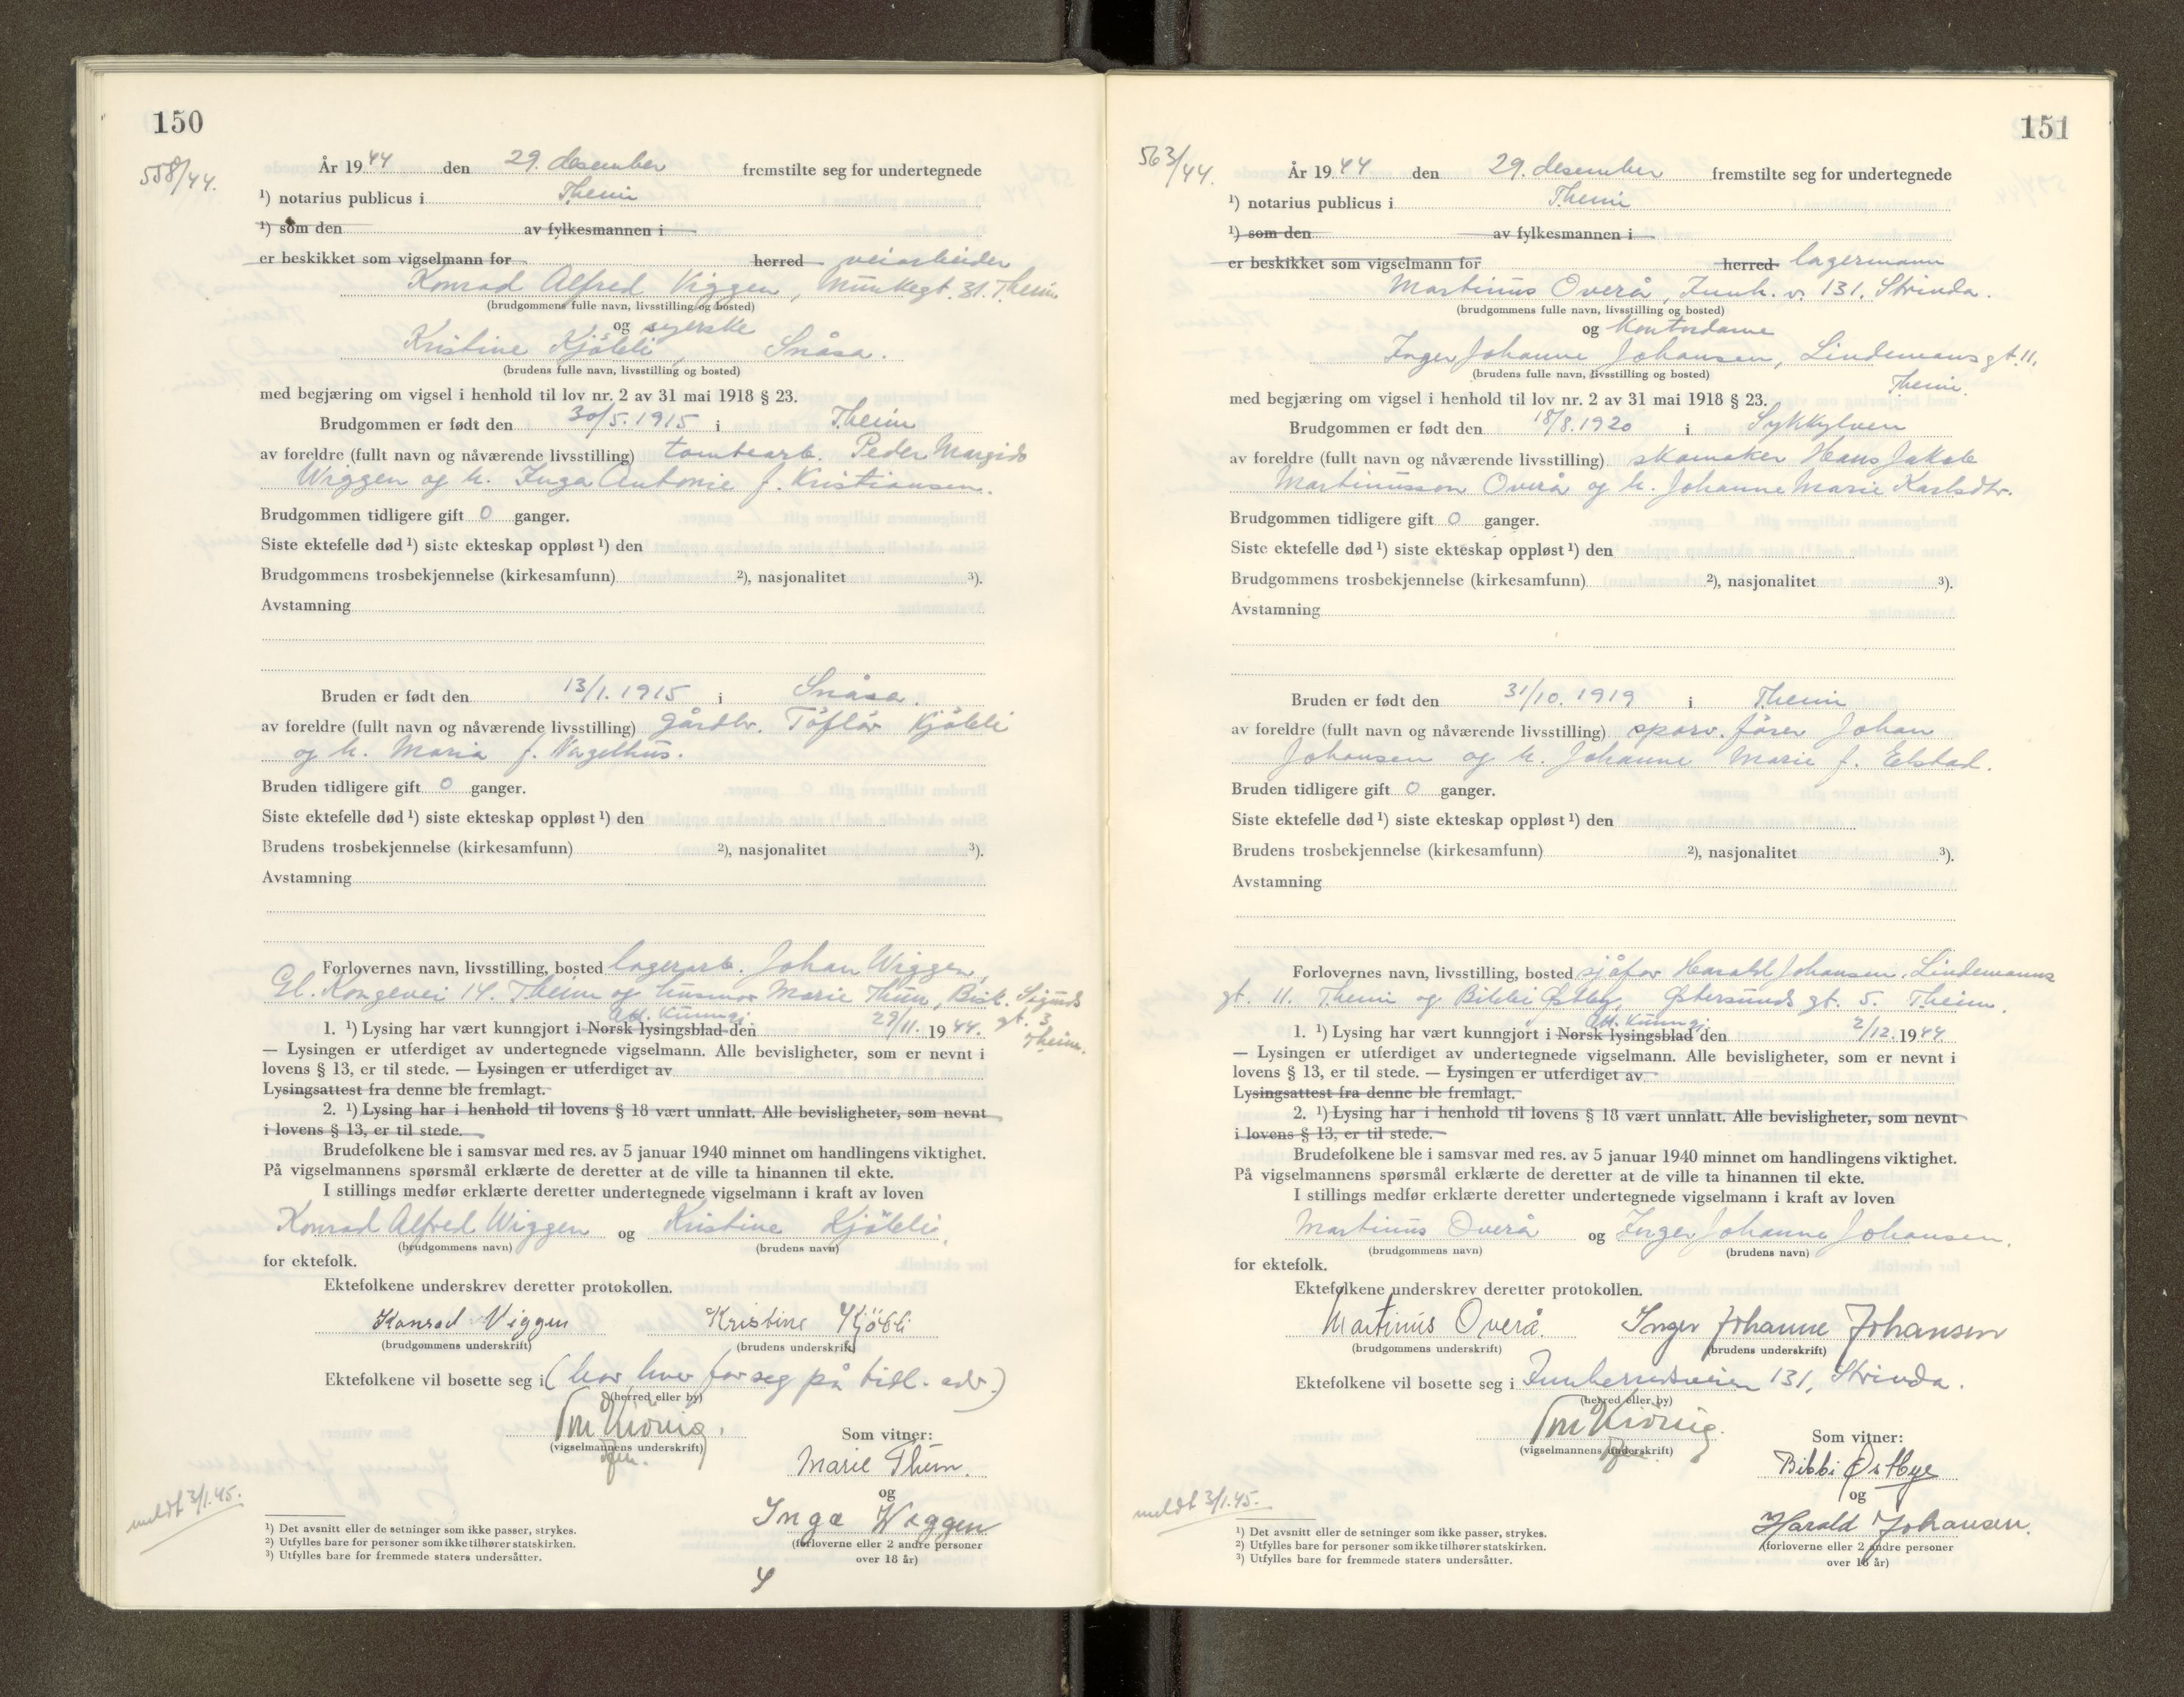 150
558/44.
År 1944 den 29. desember fremstilte seg for undertegnede
¹) notarius publicus i Theim
¹) som den av fylkesmannen i
er beskikket som vigselmann for herred veiarbeider
Konrad Alfred Viggen, Munkegt. 31. Theim
(brudgommens fulle navn, livsstilling og bosted)
og syerske
Kristine Kjöbli, Snåsa.
(brudens fulle navn, livsstilling og bosted)
med begjæring om vigsel i henhold til lov nr. 2 av 31 mai 1918 § 23.
Brudgommen er født den 30/5. 1915 i Theim
av foreldre (fullt navn og nåværende livsstilling) tomtearb. Peder Margido
Wiggen og h. Inga Antonie f. Kristiansen.
Brudgommen tidligere gift 0 ganger.
Siste ektefelle død ¹) siste ekteskap oppløst ¹) den
Brudgommens trosbekjennelse (kirkesamfunn) ²), nasjonalitet ³).
Avstamning
Bruden er født den 13/1. 1915 i Snåsa.
av foreldre (fullt navn og nåværende livsstilling) gårdbr. Töflör Kjöbli
og h. Maria f. Nagelhus.
Bruden tidligere gift 0 ganger.
Siste ektefelle død ¹) siste ekteskap oppløst ¹) den
Brudens trosbekjennelse (kirkesamfunn) ²), nasjonalitet ³).
Avstamning
Forlovernes navn, livsstilling, bosted lagerarb. Johan Wiggen,
Gl. Kongevei 14. Theim og husmor Marie Thun, Bisk. Siguds
gt. 3
Theim.
Att. Kunngj.
1. ¹) Lysing har vært kunngjort i Norsk lysingsblad den 29/11. 1944.
— Lysingen er utferdiget av undertegnede vigselmann. Alle bevisligheter, som er nevnt i
lovens § 13, er til stede. — Lysingen er utferdiget av
Lysingsattest fra denne ble fremlagt.
2. ¹) Lysing har i henhold til lovens § 18 vært unnlatt. Alle bevisligheter, som nevnt
i lovens § 13, er til stede.
Brudefolkene ble i samsvar med res. av 5 januar 1940 minnet om handlingens viktighet.
På vigselmannens spørsmål erklærte de deretter at de ville ta hinannen til ekte.
I stillings medfør erklærte deretter undertegnede vigselmann i kraft av loven
Konrad Alfred Wiggen og Kristine Kjöbli,
(brudgommens navn) (brudens navn)
for ektefolk.
Ektefolkene underskrev deretter protokollen.
Konrad Viggen Kristine Kjöbli
(brudgommens underskrift) (brudens underskrift)
Ektefolkene vil bosette seg i (bor hver for seg på tidl. adr.)
(herred eller by)
(vigselmannens underskrift)
Som vitner:
Marie Thun.
og
Inga Wiggen
(forloverne eller 2 andre personer
over 18 år)
meldt 3/1.45.
¹) Det avsnitt eller de setninger som ikke passer, strykes.
²) Utfylles bare for personer som ikke tilhører statskirken.
³) Utfylles bare for fremmede staters undersåtter.
151
563/44.
År 1944 den 29. desember fremstilte seg for undertegnede
¹) notarius publicus i Theim
¹) som den av fylkesmannen i
er beskikket som vigselmann for herred lagermann
Martinus Overå, Innh. v. 131, Strinda.
(brudgommens fulle navn, livsstilling og bosted)
og Kontordame
Inger Johanne Johansen, Lindemansgt. 11,
(brudens fulle navn, livsstilling og bosted)
Theim.
med begjæring om vigsel i henhold til lov nr. 2 av 31 mai 1918 § 23.
Brudgommen er født den 18/8. 1920 i Sykkylven
av foreldre (fullt navn og nåværende livsstilling) skomaker Hans Jakob
Martinusson Overå og h. Johanne Marie Karlsdtr.
Brudgommen tidligere gift 0 ganger.
Siste ektefelle død ¹) siste ekteskap oppløst ¹) den
Brudgommens trosbekjennelse (kirkesamfunn) ²), nasjonalitet ³).
Avstamning
Bruden er født den 31/10. 1919 i Theim
av foreldre (fullt navn og nåværende livsstilling) sporv. fører Johan
Johansen og h. Johanne Marie f. Elstad.
Bruden tidligere gift 0 ganger.
Siste ektefelle død ¹) siste ekteskap oppløst ¹) den
Brudens trosbekjennelse (kirkesamfunn) ²), nasjonalitet ³).
Avstamning
Forlovernes navn, livsstilling, bosted sjåfør Harald Johansen, Lindemanns
gt. 11. Theim og Bibbi Østby, Østersunds gt. 5. Theim.
Att. Kunngj.
1. ¹) Lysing har vært kunngjort i Norsk lysingsblad den 2/12. 1944.
— Lysingen er utferdiget av undertegnede vigselmann. Alle bevisligheter, som er nevnt i
lovens § 13, er til stede. — Lysingen er utferdiget av
Lysingsattest fra denne ble fremlagt.
2. ¹) Lysing har i henhold til lovens § 18 vært unnlatt. Alle bevisligheter, som nevnt
i lovens § 13, er til stede.
Brudefolkene ble i samsvar med res. av 5 januar 1940 minnet om handlingens viktighet.
På vigselmannens spørsmål erklærte de deretter at de ville ta hinannen til ekte.
I stillings medfør erklærte deretter undertegnede vigselmann i kraft av loven
Martinus Overå og Inger Johanne Johansen,
(brudgommens navn) (brudens navn)
for ektefolk.
Ektefolkene underskrev deretter protokollen.
Martinus Overå. Inger Johanne Johansen
(brudgommens underskrift) (brudens underskrift)
Ektefolkene vil bosette seg i Innherredsveien 131, Strinda.
(herred eller by)
(vigselmannens underskrift)
Som vitner:
Bibbi Østbye
og
Harald Johansen.
(forloverne eller 2 andre personer
over 18 år)
meldt 3/1.45.
¹) Det avsnitt eller de setninger som ikke passer, strykes.
²) Utfylles bare for personer som ikke tilhører statskirken.
³) Utfylles bare for fremmede staters undersåtter.